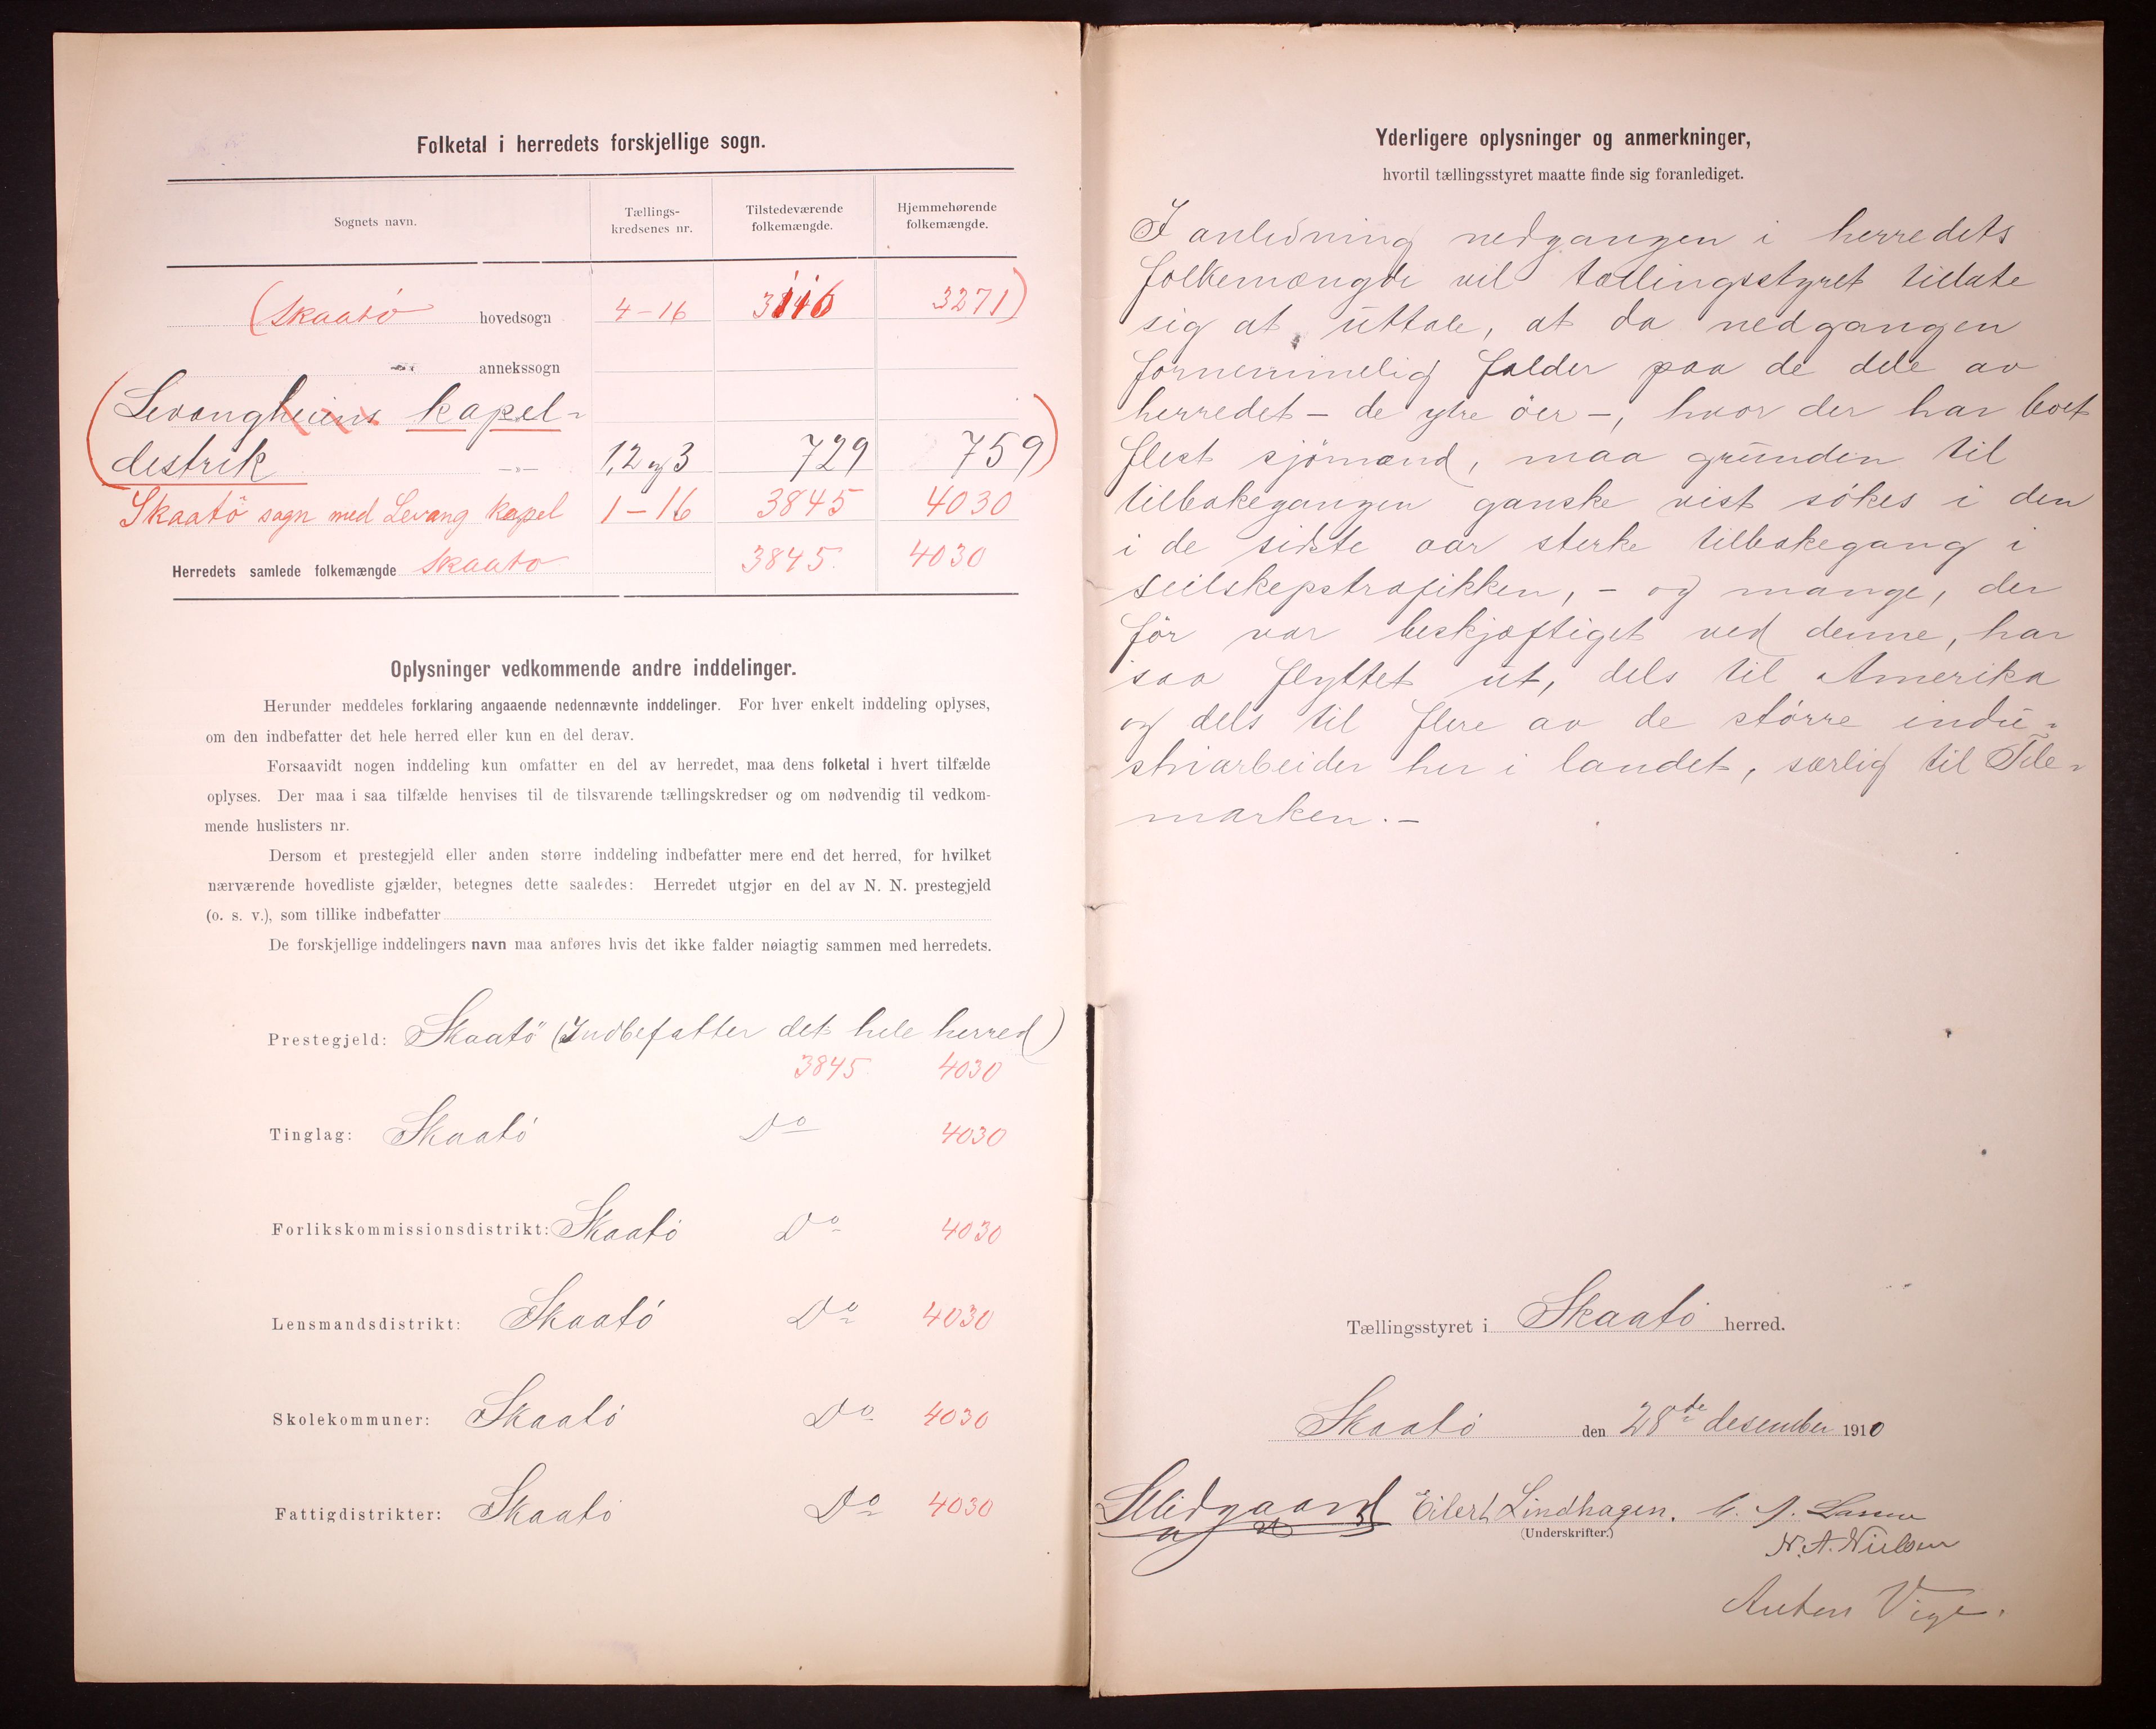 Folketal i herredets forskjellige sogn.
Sognets navn. Tællings-kredsenes nr. Tilstedeværende folkemængde. Hjemmehørende folkemængde.
(Skaatö hovedsogn 4-16 3116 3271)
annekssogn
(Levangheiens kapel-
destrik -»- 1,2 og 3 729 759)
Skaatö sogn med Levang kapel 1-16 3845 4030
Herredets samlede folkemængde Skaatö 3845 4030
Oplysninger vedkommende andre inddelinger.
Herunder meddeles forklaring angaaende nedennævnte inddelinger. For hver enkelt inddeling oplyses,
om den indbefatter det hele herred eller kun en del derav.
Forsaavidt nogen inddeling kun omfatter en del av herredet, maa dens folketal i hvert tilfælde
oplyses. Der maa i saa tilfælde henvises til de tilsvarende tællingskredser og om nødvendig til vedkom-
mende huslisters nr.
Dersom et prestegjeld eller anden større inddeling indbefatter mere end det herred, for hvilket
nærværende hovedliste gjælder, betegnes dette saaledes: Herredet utgjør en del av N. N. prestegjeld
(o. s. v.), som tillike indbefatter
De forskjellige inddelingers navn maa anføres hvis det ikke falder nøiagtig sammen med herredets.
Prestegjeld: Skaatö (Indbefatter det hele herred)
3845 4030
Tinglag: Skaatö Do 4030
Forlikskommissionsdistrikt: Skaatö Do 4030
Lensmandsdistrikt: Skaatö Do 4030
Skolekommuner: Skaatö Do 4030
Fattigdistrikter: Skaatö Do 4030
Yderligere oplysninger og anmerkninger,
hvortil tællingsstyret maatte finde sig foranlediget.
I anledning nedgangen i herredets
folkemængde vil tællingsstyret tillate
sig at uttale, at da nedgangen
fornemmelig falder paa de dele av
herredet - de ytre öer -, hvor der har boet
flest sjömænd, maa grunden til
tilbakegangen ganske vist sökes i den
i de sidste aar sterke tilbakegang i
seilskepstrafikken, - og mange, der
för var beskjæftiget ved denne, har
saa flyttet ut, dels til Amerika
og dels til flere av de större indu-
striarbeider her i landet, særlig til Tele-
marken.-
Tællingsstyret i Skaatö herred.
Skaatö den 28de desember 1910
Midgaard Eilert Lindhagen.
(Underskrifter.)
N. A. Nielsen
Anton Vige.